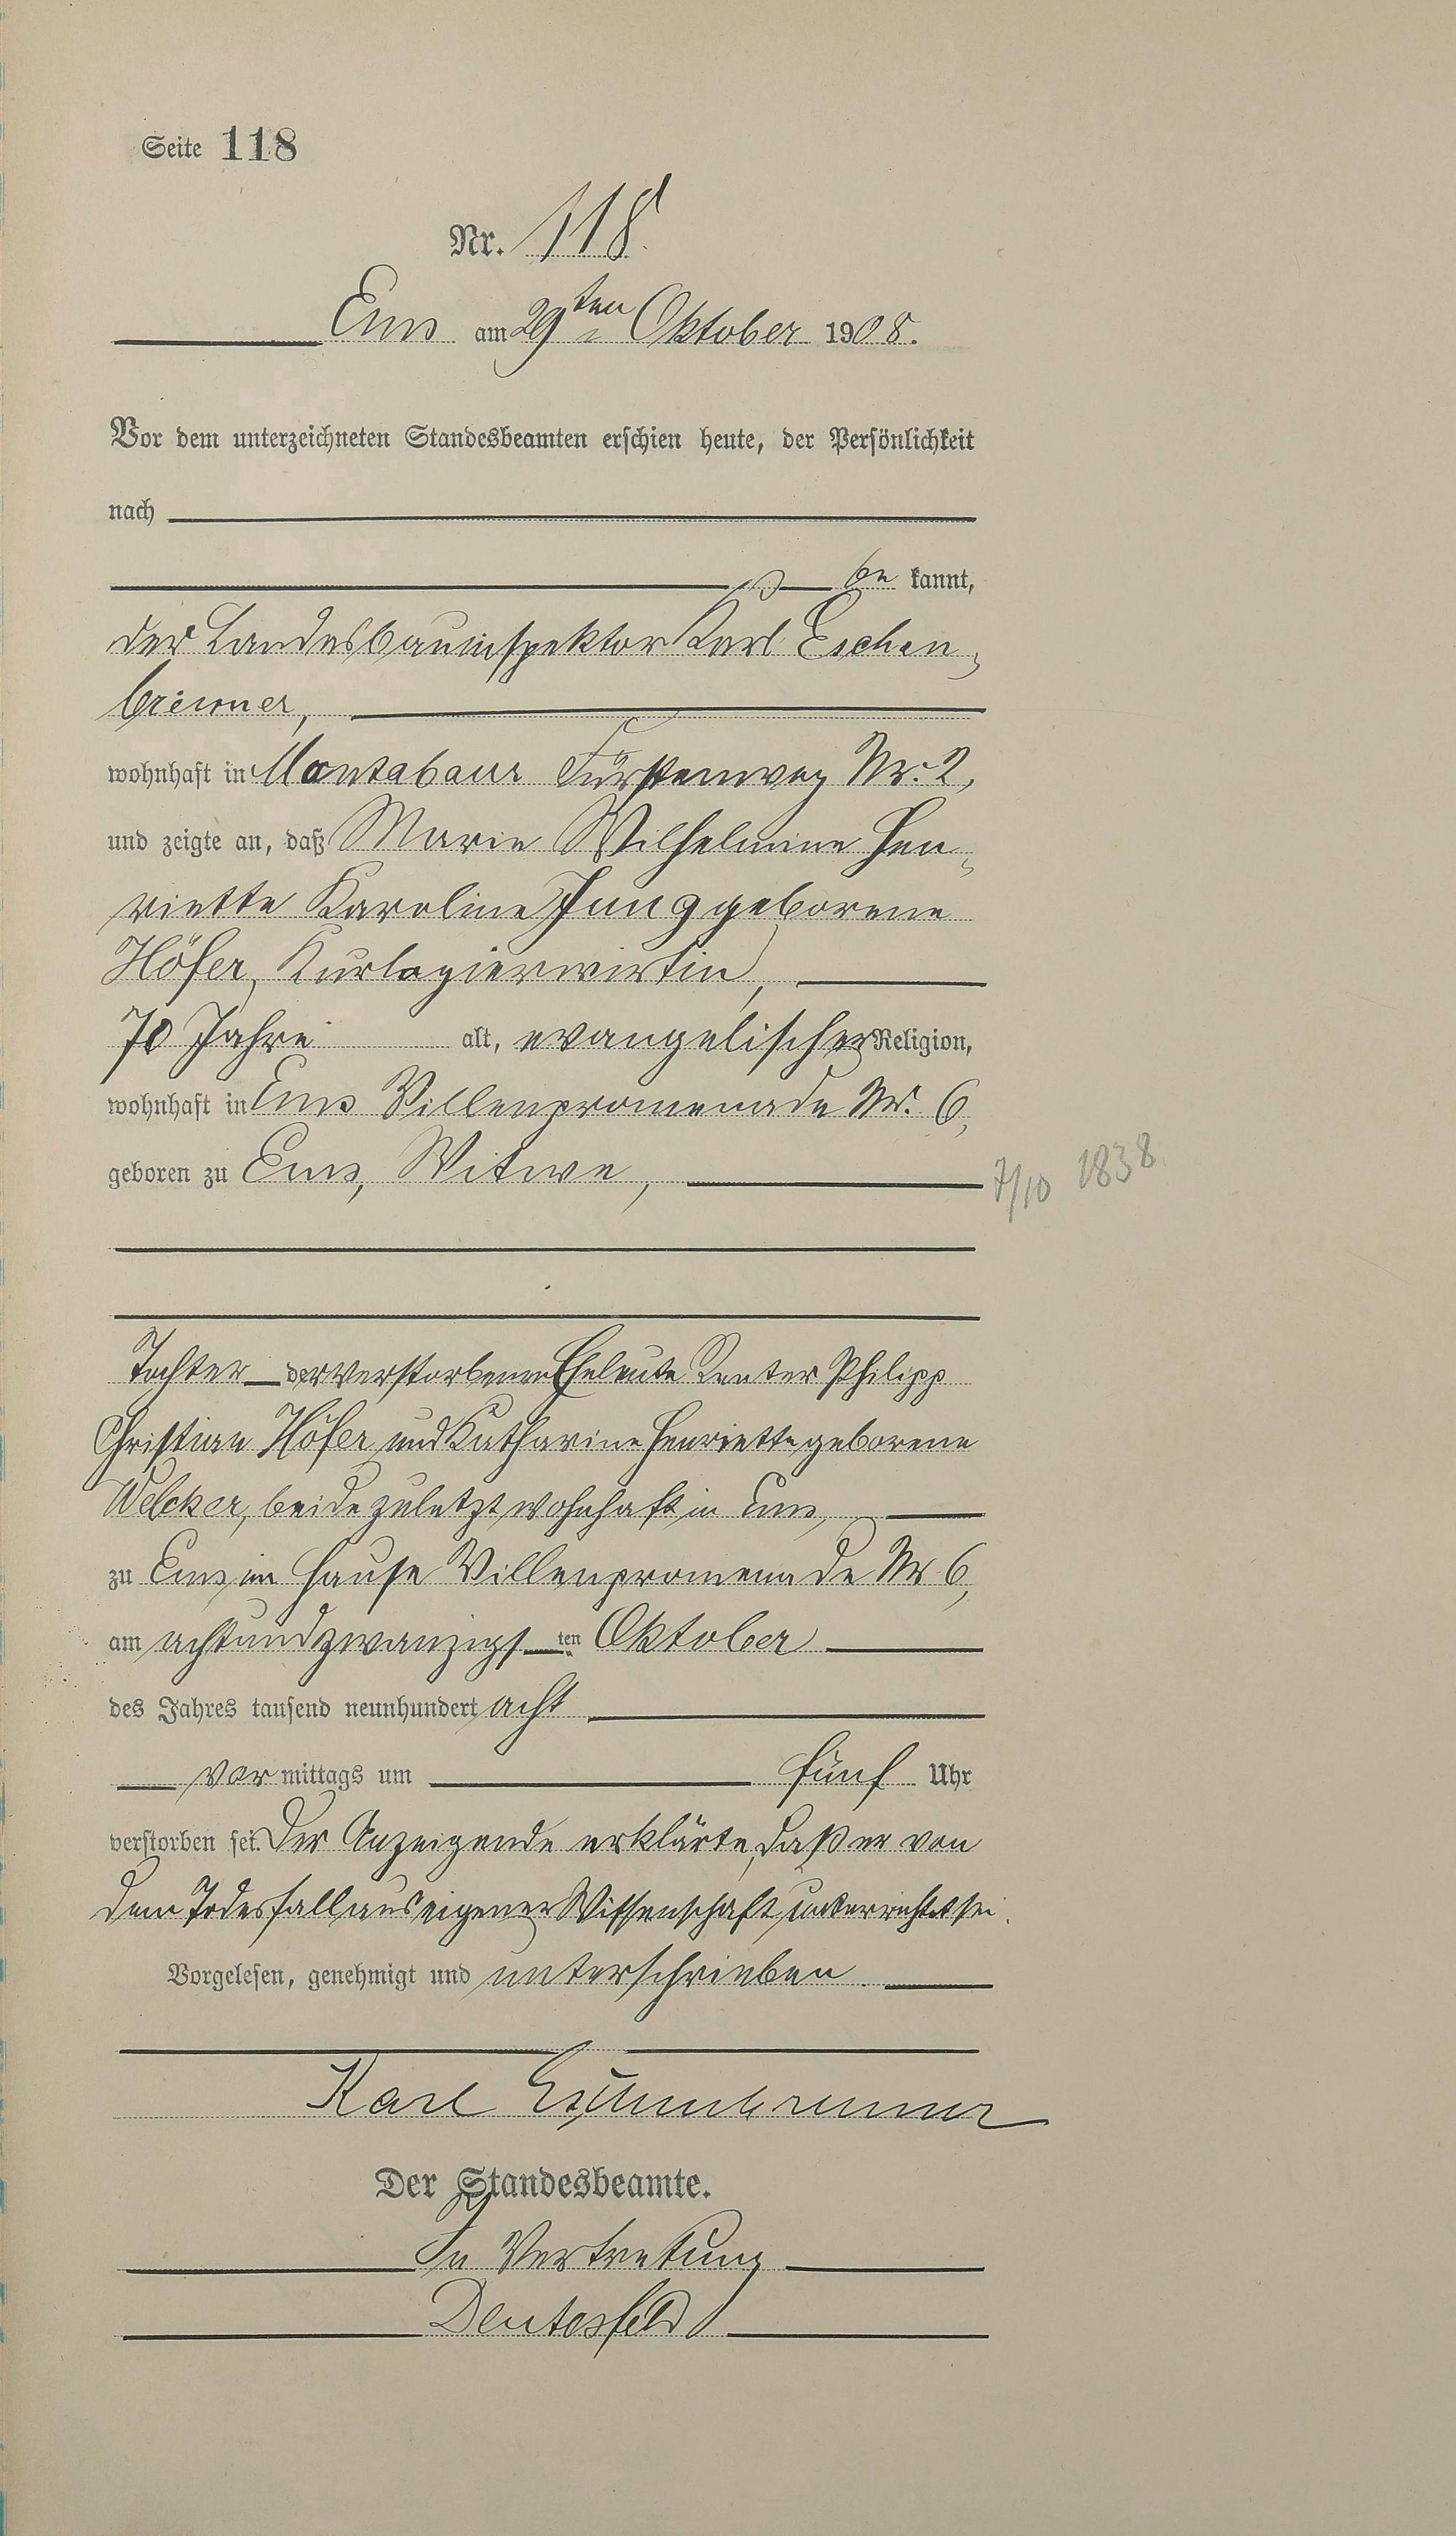 Seite 118
Nr. 118.
Ems am 29ten Oktober 1908.
Vor dem unterzeichneten Standesbeamten erschien heute, der Persönlichkeit
nach
be kannt,
der Landesbauinspektor Karl Eschen„
brenner,
wohnhaft in Montabaur Fürstenweg Nr. 2,
und zeigte an, daß Marie Wilhelmine Hen„
riette Karoline Jung geborene
Höfer, Kurlogierwirtin,
70 Jahre alt, evangelischer Religion,
wohnhaft in Ems Villenpromenade Nr. 6,
geboren zu Ems, Witwe,
7/10 1838
Tochter der verstorbenen Eheleute Rentner Philipp
Christian Höfer und Katharine Henriette geborene
Welcker, beide zuletzt wohnhaft in Ems,
zu Ems im Hause Villenpromenade Nr 6,
am achtundzwanzigs ten Oktober
des Jahres tausend neunhundert acht
vor mittags um fünf Uhr
verstorben sei. Der Anzeigende erklärte, daß er von
dem Todesfall aus eigener Wissenschaft unterrichtet sei.
Vorgelesen, genehmigt und unterschrieben.
Karl Eschenbrenner
Der Standesbeamte.
In Vertretung